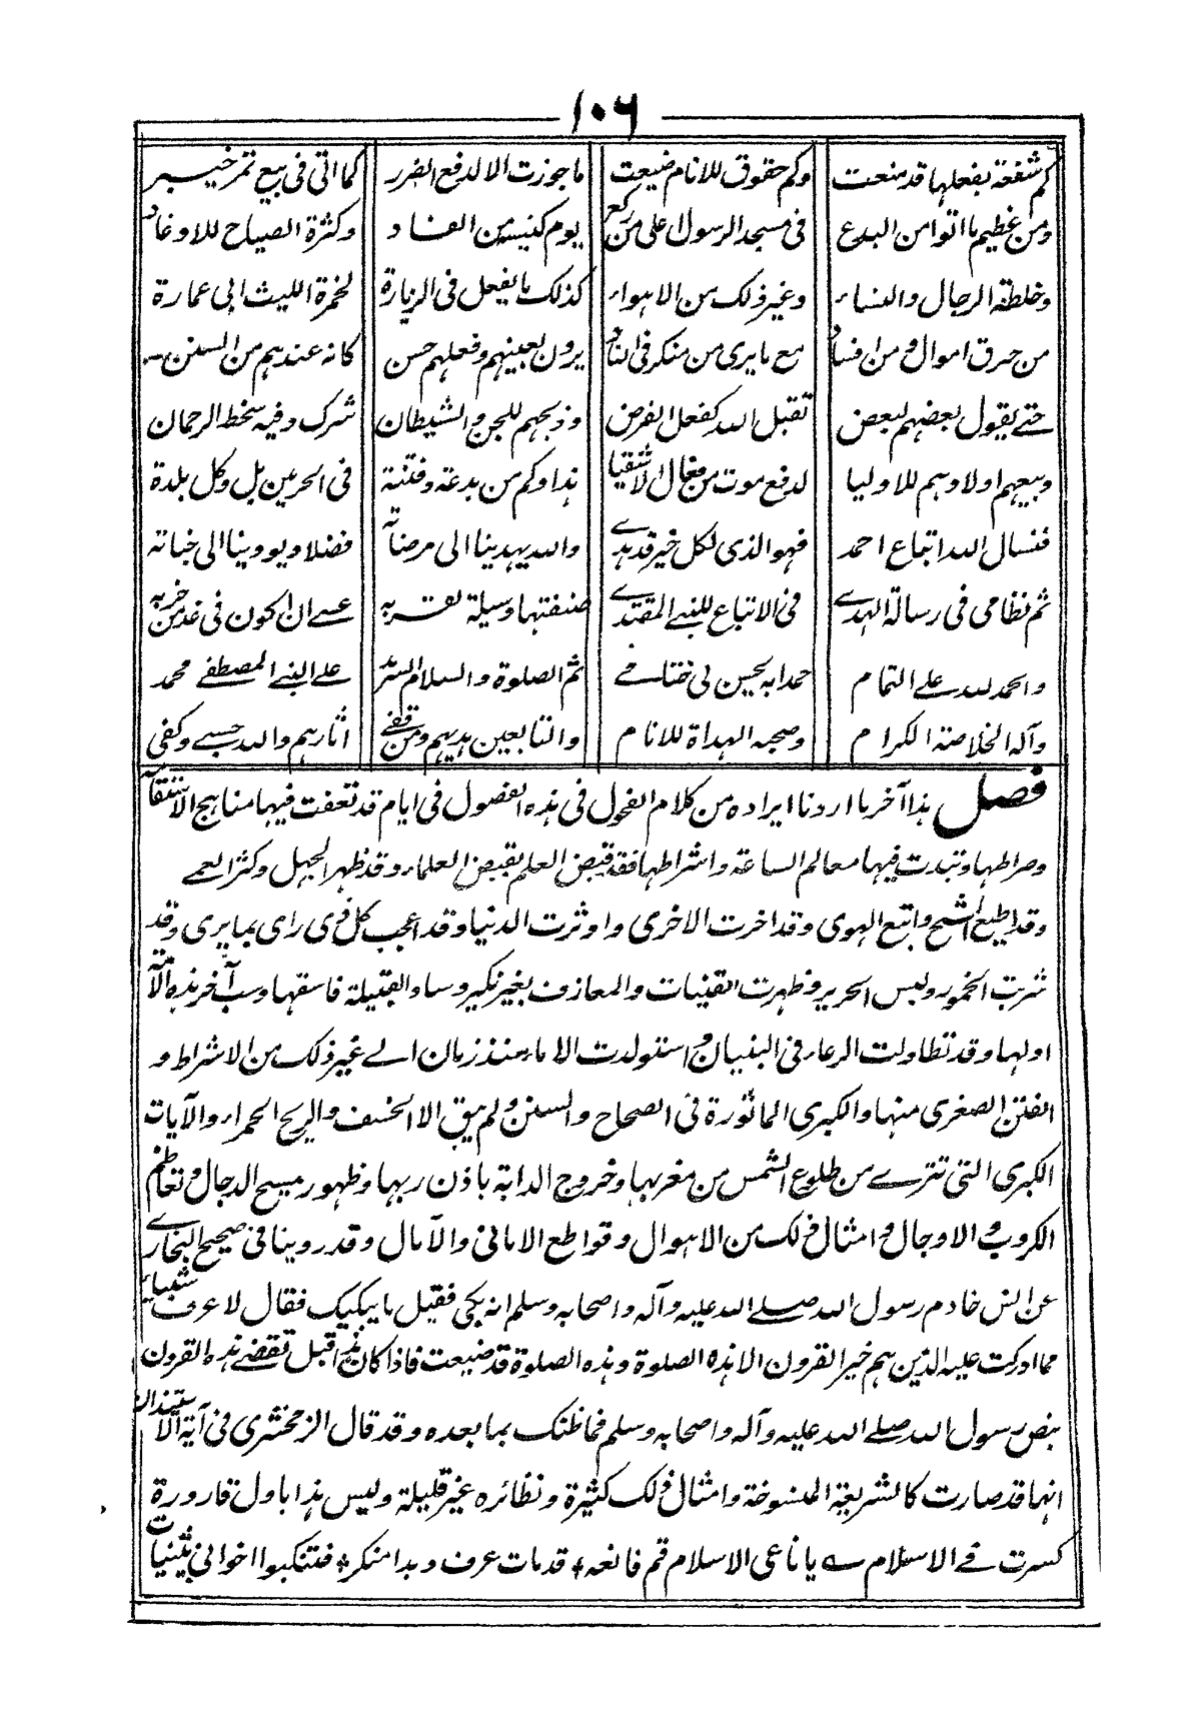 ١٠٦
كم شفعة بفعلها قد منعت وكم حقوق للانام ضيعت ما جوزت الا لدفع الضرر كما اتى فى بيع تمر خيبر
ومن عظيم ما اتوا من البدع فى مسجد الرسول على من ركع يوم كنيس من الفساد وكثرة الصياح للاوغاد
وخلطة الرجال والنساء وغير ذلك من الاهواء كذلك ما يفعل فى الزيارة لحمزة الليث ابى عمارة
من حرق اموال ومن افساد مع ما يرى من منكر فى الناد يرون لعبينهم وفعلهم حسن كانه عندهم من السنن
حتے يقول بعضهم لبعض تقبل الله كفعل الفرض وذبحهم للجن والشيطان شرك وفيه سخط الرحمان
وبيعهم اولادهم للاوليا لدفع موت من فعال الاشقيا هذا وكم من بدعة وفتنة فى الحرمين بل وكل بلدة
فنسال الله اتباع احمد فهو الذى لكل خير قد هدے والله يهدينا الى مرضاته فضلا ويووينا الى جناته
ثم نظامى فى رسالة الهدے فى الاتباع للنبے المقتدے صنفتها وسيلة لقربه عسے ان اكون فى غد من حزبه
والحمد لله على التمام حمدا به يحسن لى ختامے ثم الصلوة والسلام السرمد علے النبے المصطفے محمد
وآله الخلاصة الكرام وصحبه الهداة للانام والتابعين هديهم ومن قفے اثارهم والله حسبے وكفى
فصل هذا آخر ما اردنا ايراده من كلام الفحول فى هذه الفصول فى ايام قد تعفت فيها مناهج الاستقامة
وصراطها وتبدت فيها معالم الساعة واشراطها فقد قبض العلم بقبض العلماء وقد ظهر الجهل وكثر العمے
وقد اطيع الشح واتبع الهوى وقد اخرت الاخرى واوثرت الدنيا وقد اعجب كل ذى راى بما يرى وقد
شربت الخمور ولبس الحرير وظهرت القينات والمعازف بغير نكير وساد القبيلة فاسقها وسب آخر هذه الامة
اولها وقد تطاولت الرعاء فى البنيان واستولدت الاماء منذ زمان الے غير ذلك من الاشراط و
الفتن الصغرى منها والكبرى الماثورة فى الصحاح والسنن ولم يبق الا الخسف والريح الحمراء والآيات
الكبرى التى تترے من طلوع الشمس من مغربها وخروج الدابة باذن ربها وظهور مسيح الدجال وتعاظم
الكروب والاوجال وامثال ذلك من الاهوال وقواطع الامانى والآمال وقد روينا فى صحيح البخارے
عن انس خادم رسول الله صلے الله عليه وآله واصحابه وسلم انه بكى فقيل ما يبكيك فقال لا عرف شيا
مما ادركت عليه الذين هم خير القرون الا هذه الصلوة وهذه الصلوة قد ضيعت فاذا كان هذا قبل تقضے هذه القرون
بنص رسول الله صلے الله عليه وآله واصحابه وسلم فما ظنك بما بعده وقد قال الزمخشرى فى آية الاستيذان
انها قد صارت كالشريعة المنسوخة وامثال ذلك كثيرة ونظائره غير قليلة وليس هذا باول قارورة
كسرت فے الاسلام ے يا ناعى الاسلام قم فانعه + قد مات عرف وبدا منكر + فتنكبوا اخوانى بثنيات